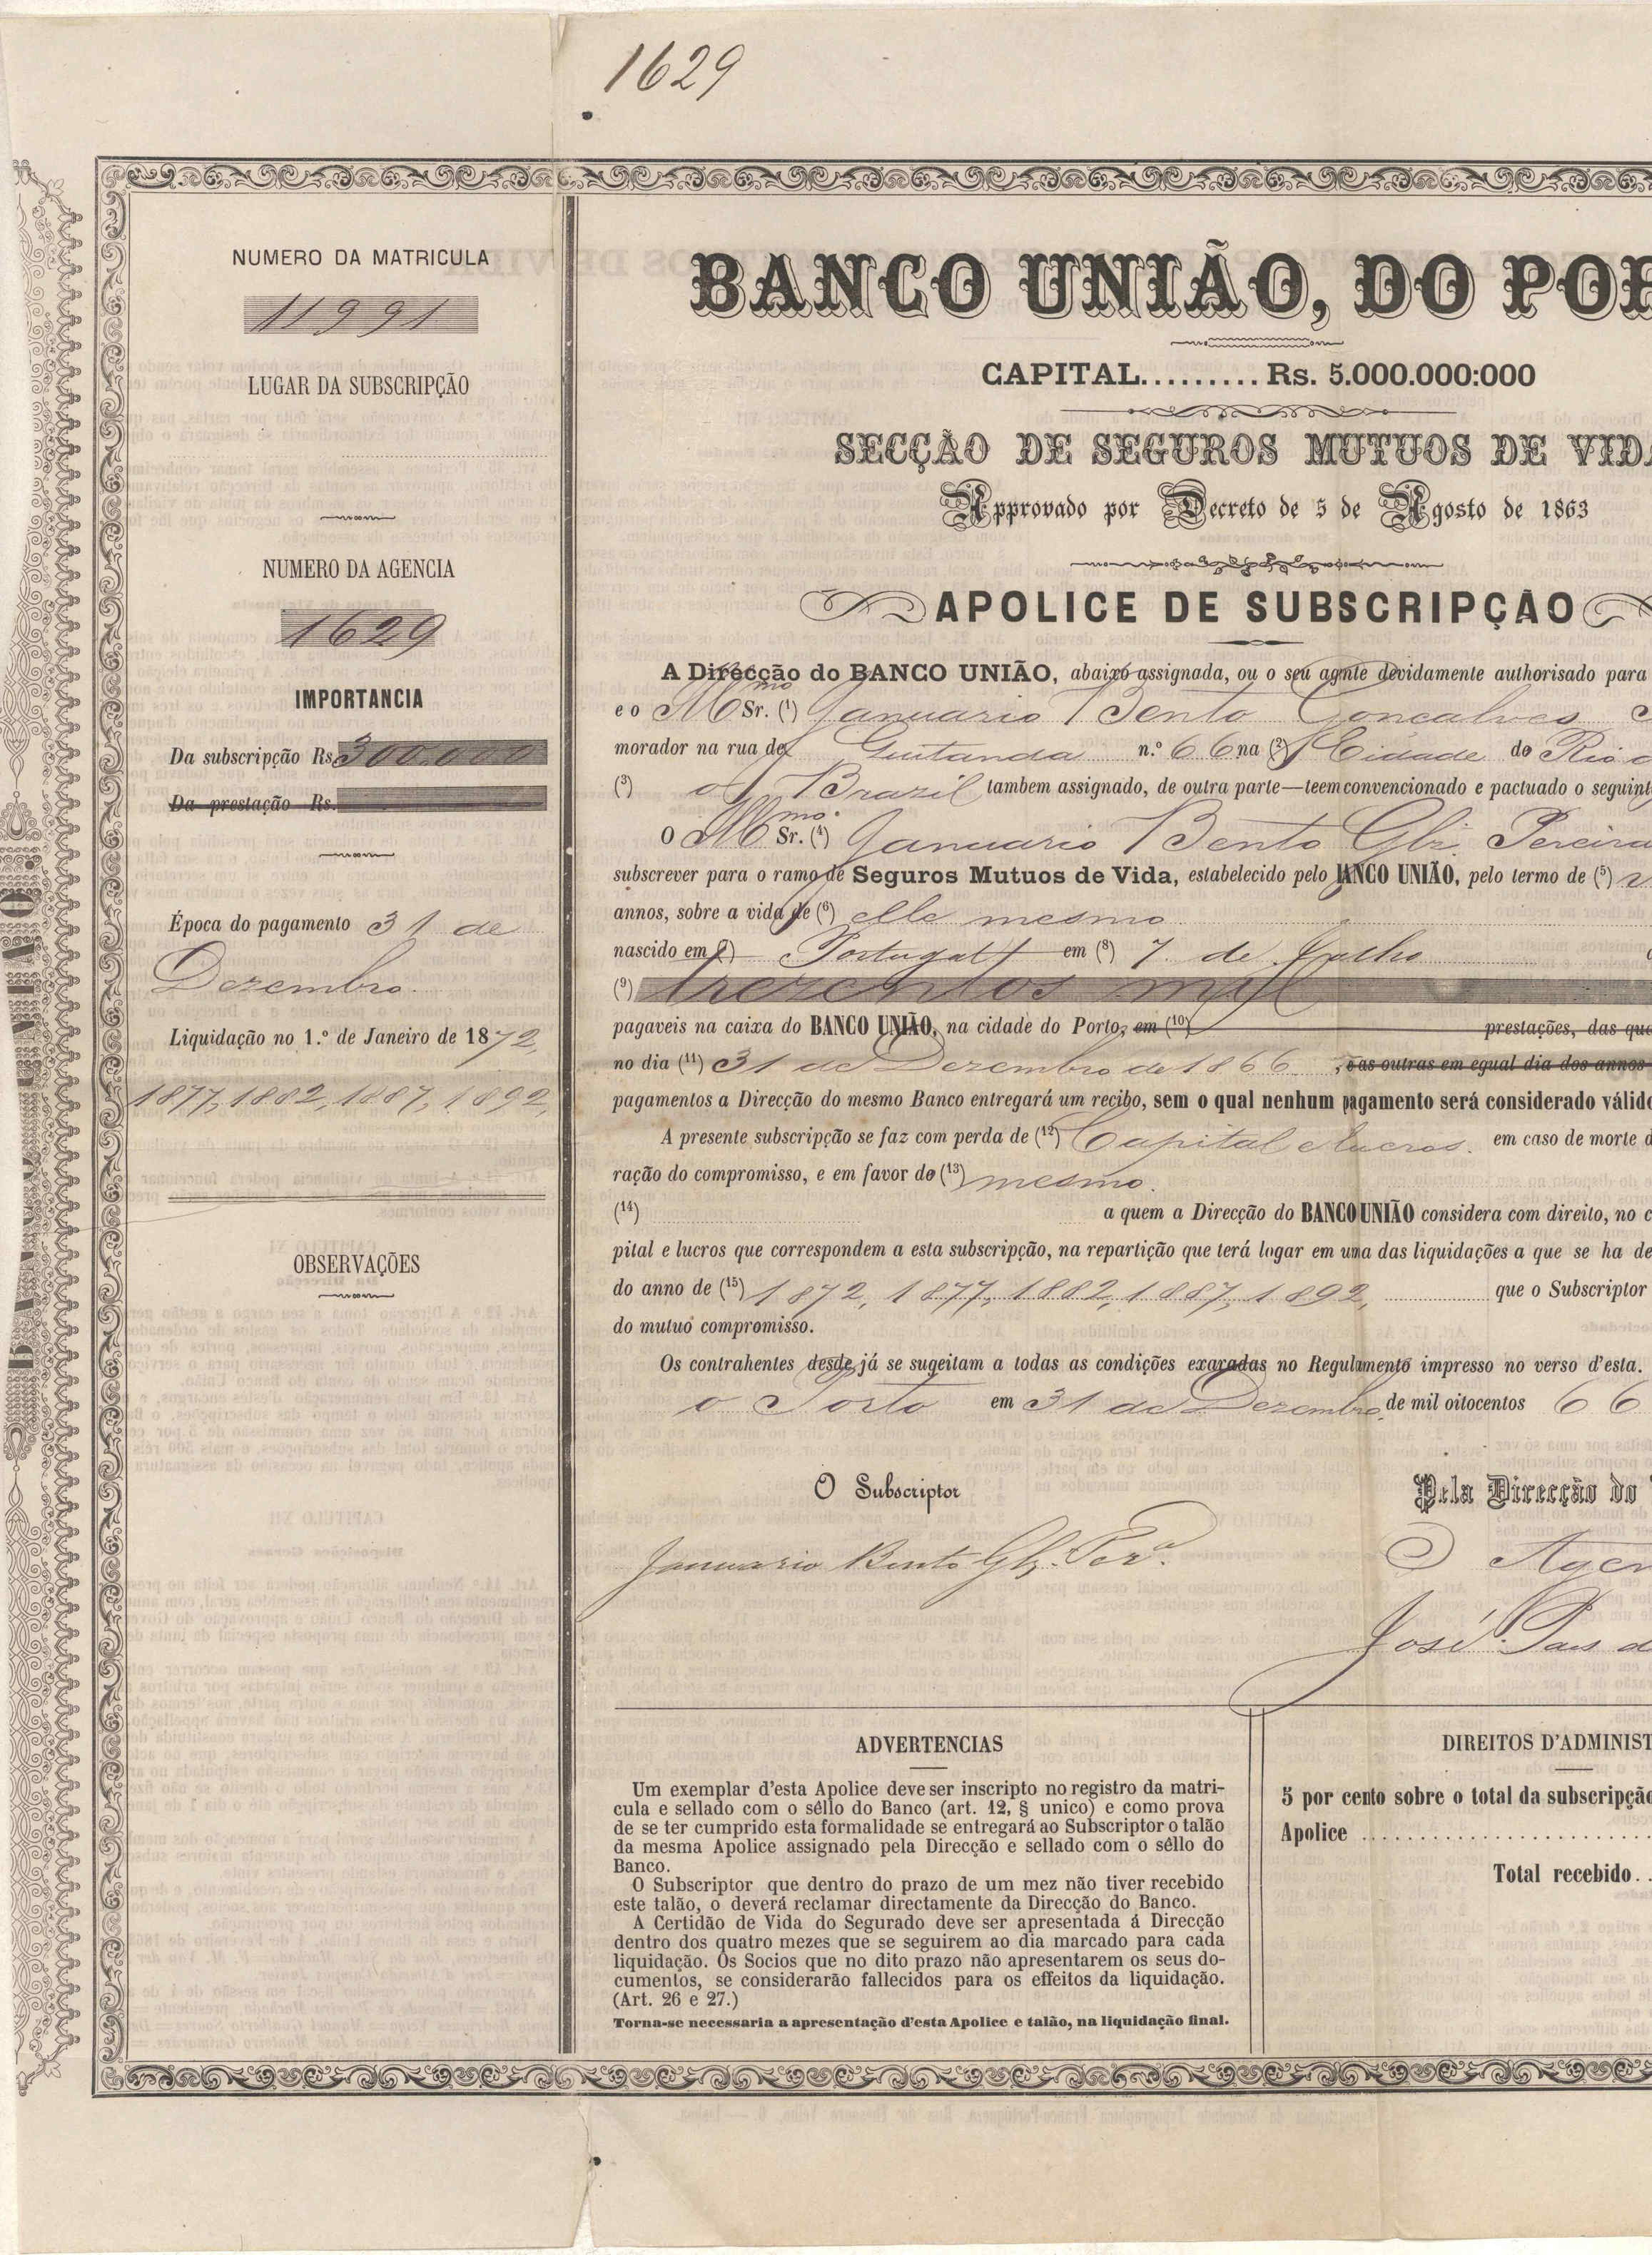 1629
NUMERO DA MATRICULA
11991
LUGAR DA SUBSCRIPÇÃO
NUMERO DA AGENCIA
1629
IMPORTANCIA
Da subscripção Rs. 300.000
Da prestação Rs.
Época do pagamento 31 de
Dezembro.
Liquidação no 1.º de Janeiro de 1872,
1877, 1882, 1887, 1892,
OBSERVAÇÕES
BANCO UNIÃO, DO POR
CAPITAL......... Rs. 5.000.000:000
SECÇÃO DE SEGUROS MUTUOS DE VIDA
Approvado por Decreto de 5 de Agosto de 1863
APOLICE DE SUBSCRIPÇÃO
A Direcção do BANCO UNIÃO, abaixo assignada, ou o seu agnte devidamente authorisado para
e o Illmo Sr. (1) Januario Bento Goncalves
morador na rua de Quitanda n.º 66 na (2) Cidade do Rio d
(3) o Brazil tambem assignado, de outra parte—teem convencionado e pactuado o seguint
O Illmo. Sr. (4) Januario Bento Glz. Pereira
subscrever para o ramo de Seguros Mutuos de Vida, estabelecido pelo BANCO UNIÃO, pelo termo de (5)
annos, sobre a vida de (6) elle mesmo
nascido em (7) Portugal em (8) 7 de Julho
(9) trezentos mil
pagaveis na caixa do BANCO UNIÃO, na cidade do Porto, em (10) prestações, das que
no dia (11) 31 de Dezembro de 1866, e as outras em egual dia dos annos
pagamentos a Direcção do mesmo Banco entregará um recibo, sem o qual nenhum pagamento será considerado válido
A presente subscripção se faz com perda de (12) Capital e lucros. em caso de morte d
ração do compromisso, e em favor do (13) mesmo.
(14) a quem a Direcção do BANCO UNIÃO considera com direito, no c
pital e lucros que correspondem a esta subscripção, na repartição que terá logar em uma das liquidações a que se ha de
do anno de (15) 1872, 1877, 1882, 1887, 1892, que o Subscriptor
do mutuo compromisso.
Os contrahentes desde já se sugeitam a todas as condições exaradas no Regulamento impresso no verso d'esta.
o Porto em 31 de Dezembro de mil oitocentos 66
O Subscriptor
Januario Bento Glz. Perª.
Pela Direcção do
O Agen
José Paes d
ADVERTENCIAS
Um exemplar d'esta Apolice deve ser inscripto no registro da matri-
cula e sellado com o sêllo do Banco (art. 12, § unico) e como prova
de se ter cumprido esta formalidade se entregará ao Subscriptor o talão
da mesma Apolice assignado pela Direcção e sellado com o sêllo do
Banco.
O Subscriptor que dentro do prazo de um mez não tiver recebido
este talão, o deverá reclamar directamente da Direcção do Banco.
A Certidão de Vida do Segurado deve ser apresentada á Direcção
dentro dos quatro mezes que se seguirem ao dia marcado para cada
liquidação. Os Socios que no dito prazo não apresentarem os seus do-
cumentos, se considerarão fallecidos para os effeitos da liquidação.
(Art. 26 e 27.)
Torna-se necessaria a apresentação d'esta Apolice e talão, na liquidação final.
DIREITOS D'ADMINIST
5 por cento sobre o total da subscripção
Apolice ..........................
Total recebido..